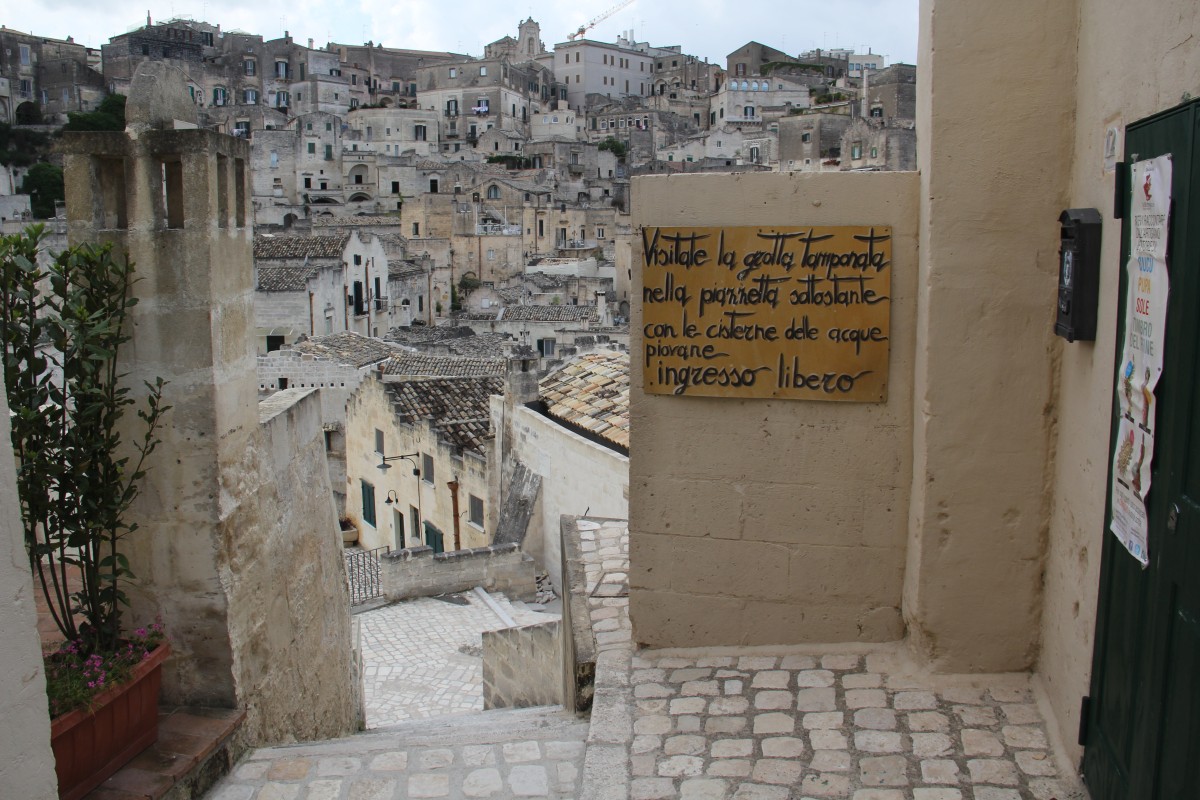 Visitate la grotta Tamponata
nella piazzetta sottostante
con le cisterne delle acque
piovane
ingresso libero
PUPA
SOLE